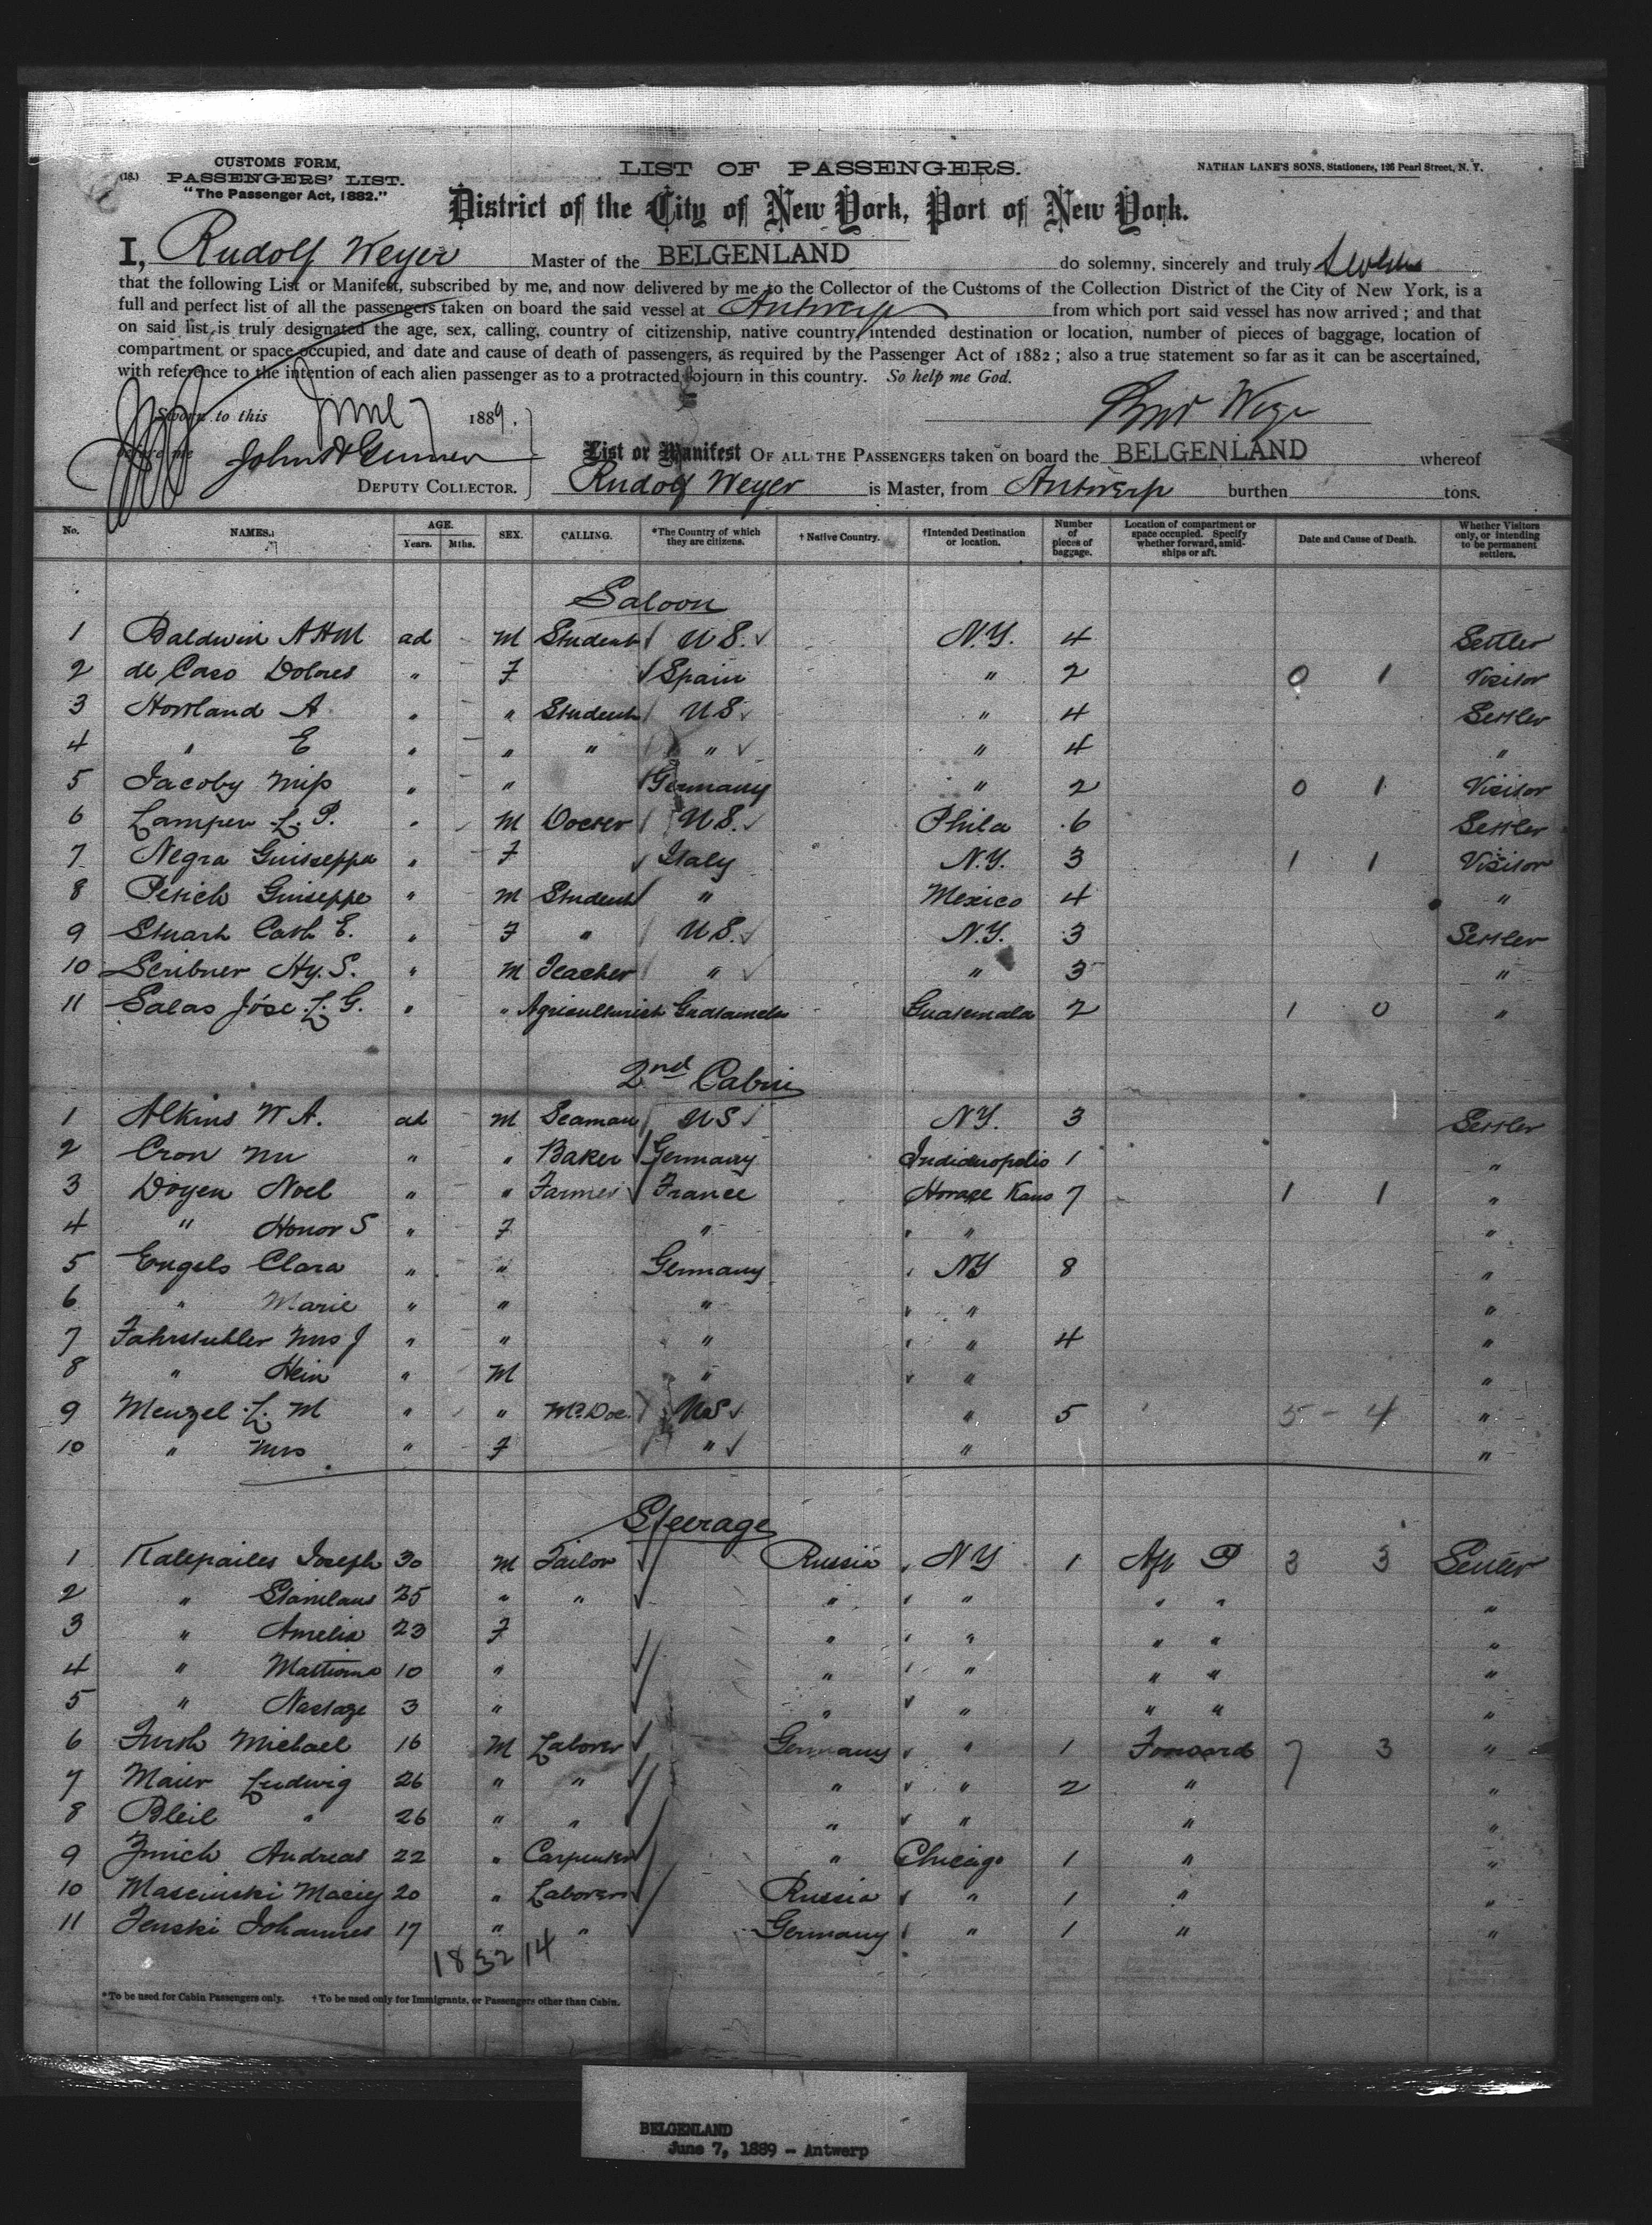 (18.)
CUSTOMS FORM,
PASSENGERS' LIST.
"The Passenger Act, 1882."
LIST OF PASSENGERS.
NATHAN LANE'S SONS, Stationers, 126 Pearl Street, N. Y.
District of the City of New York, Port of New York.
I, Rudolf Weyer Master of the BELGENLAND do solemny, sincerely and truly
that the following List or Manifest, subscribed by me, and now delivered by me to the Collector of the Customs of the Collection District of the City of New York, is a
full and perfect list of all the passengers taken on board the said vessel at Antwerp from which port said vessel has now arrived; and that
on said list is truly designated the age, sex, calling, country of citizenship, native country, intended destination or location, number of pieces of baggage, location of
compartment or space occupied, and date and cause of death of passengers, as required by the Passenger Act of 1882; also a true statement so far as it can be ascertained,
with reference to the intention of each alien passenger as to a protracted sojourn in this country. So help me God.
Sworn to this June 7 1889.
before me John
DEPUTY COLLECTOR.
List or Manifest OF ALL THE PASSENGERS taken on board the BELGENLAND whereof
Rudolf Weyer is Master, from Antwerp burthen tons.
No. NAMES. AGE. Years. Mths. SEX. CALLING. *The Country of which they are citizens. † Native Country. †Intended Destination or location. Number of pieces of baggage. Location of compartment or space occupied. Specify whether forward, amidships or aft. Date and Cause of Death. Whether Visitors only, or intending to be permanent settlers.
Saloon
1 Baldwin A H M ad M Student U S. N.Y. 4 Settler
2 de Caso Dolores " F Spain " 2 0 1 Visitor
3 Howland A " " Student U S " 4 Settler
4 " E " " " " " 4 "
5 Jacoby Miss " " Germany " 2 0 1 Visitor
6 Lamper L. P. " M Docter U S. Phila 6 Settler
7 Negra Guisseppa " F Italy N.Y. 3 1 1 Visitor
8 Guiseppe " M Student " Mexico 4 "
9 Stuart Cath E. " F " U S. N.Y. 3 Settler
10 Scribner Hy. S. " M Teacher " " 3 "
11 Salas José L. G. " " Agriculturist Guatamela Guatemala 2 1 0 "
2nd Cabin
1 Alkins W A. ad M Seaman U S N Y. 3 Settler
2 Cron " " Baker Germany Indianopolis 1 "
3 Doyen Noel " " Farmer France Horace Kans 7 1 1 "
4 " Honor S " F " " "
5 Engels Clara " " Germany N Y 8 "
6 " Marie " " " " "
7 Fahrstuhler Mrs J " " " " 4 "
8 " Hein " M " " "
9 Menzel L. M " " U S " 5 5 - 4 "
10 " Mrs " F " " "
Steerage
1 Kalepailes Joseph 30 M Tailor Russia N Y 1 Aft P 3 3 Settler
2 " Stanilaus 25 " " " " " " "
3 " Amelia 23 F " " " " "
4 " 10 " " " " " "
5 " Nastaze 3 " " " " " "
6 Michael 16 M Laborer Germany " 1 Forward 7 3 "
7 Maier Ludwig 26 " " " " 2 " "
8 Bleil " 26 " " " " " "
9 Andreas 22 " Carpenter " Chicago 1 " "
10 Mascinski Maciej 20 " Laborer Russia " 1 " "
11 Johannes 17 " " Germany " 1 " "
18 32 14
*To be used for Cabin Passengers only. †To be used only for Immigrants, or Passengers other than Cabin.
BELGENLAND
June 7, 1889 - Antwerp